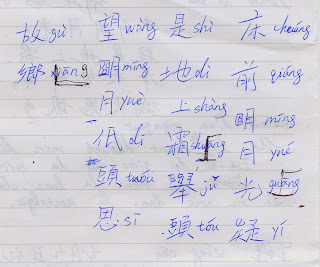 床 cheúng 前 qiáng 明 míng 月 yué 光 guāng 疑 yí
是 shì 地 dì 上 shàng 霜 shuāng 舉 jǔ 頭 tóu
望 wàng 明 míng 月 yuè 低 dī 頭 tuóu 思 sī
故 gù 鄉 xiāng